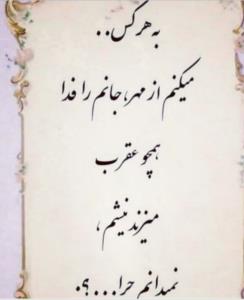 به هر کس..
میکنم از مهر، جانم را فدا
همچو عقرب
میزند نیشم،
نمیدانم چرا...؟.